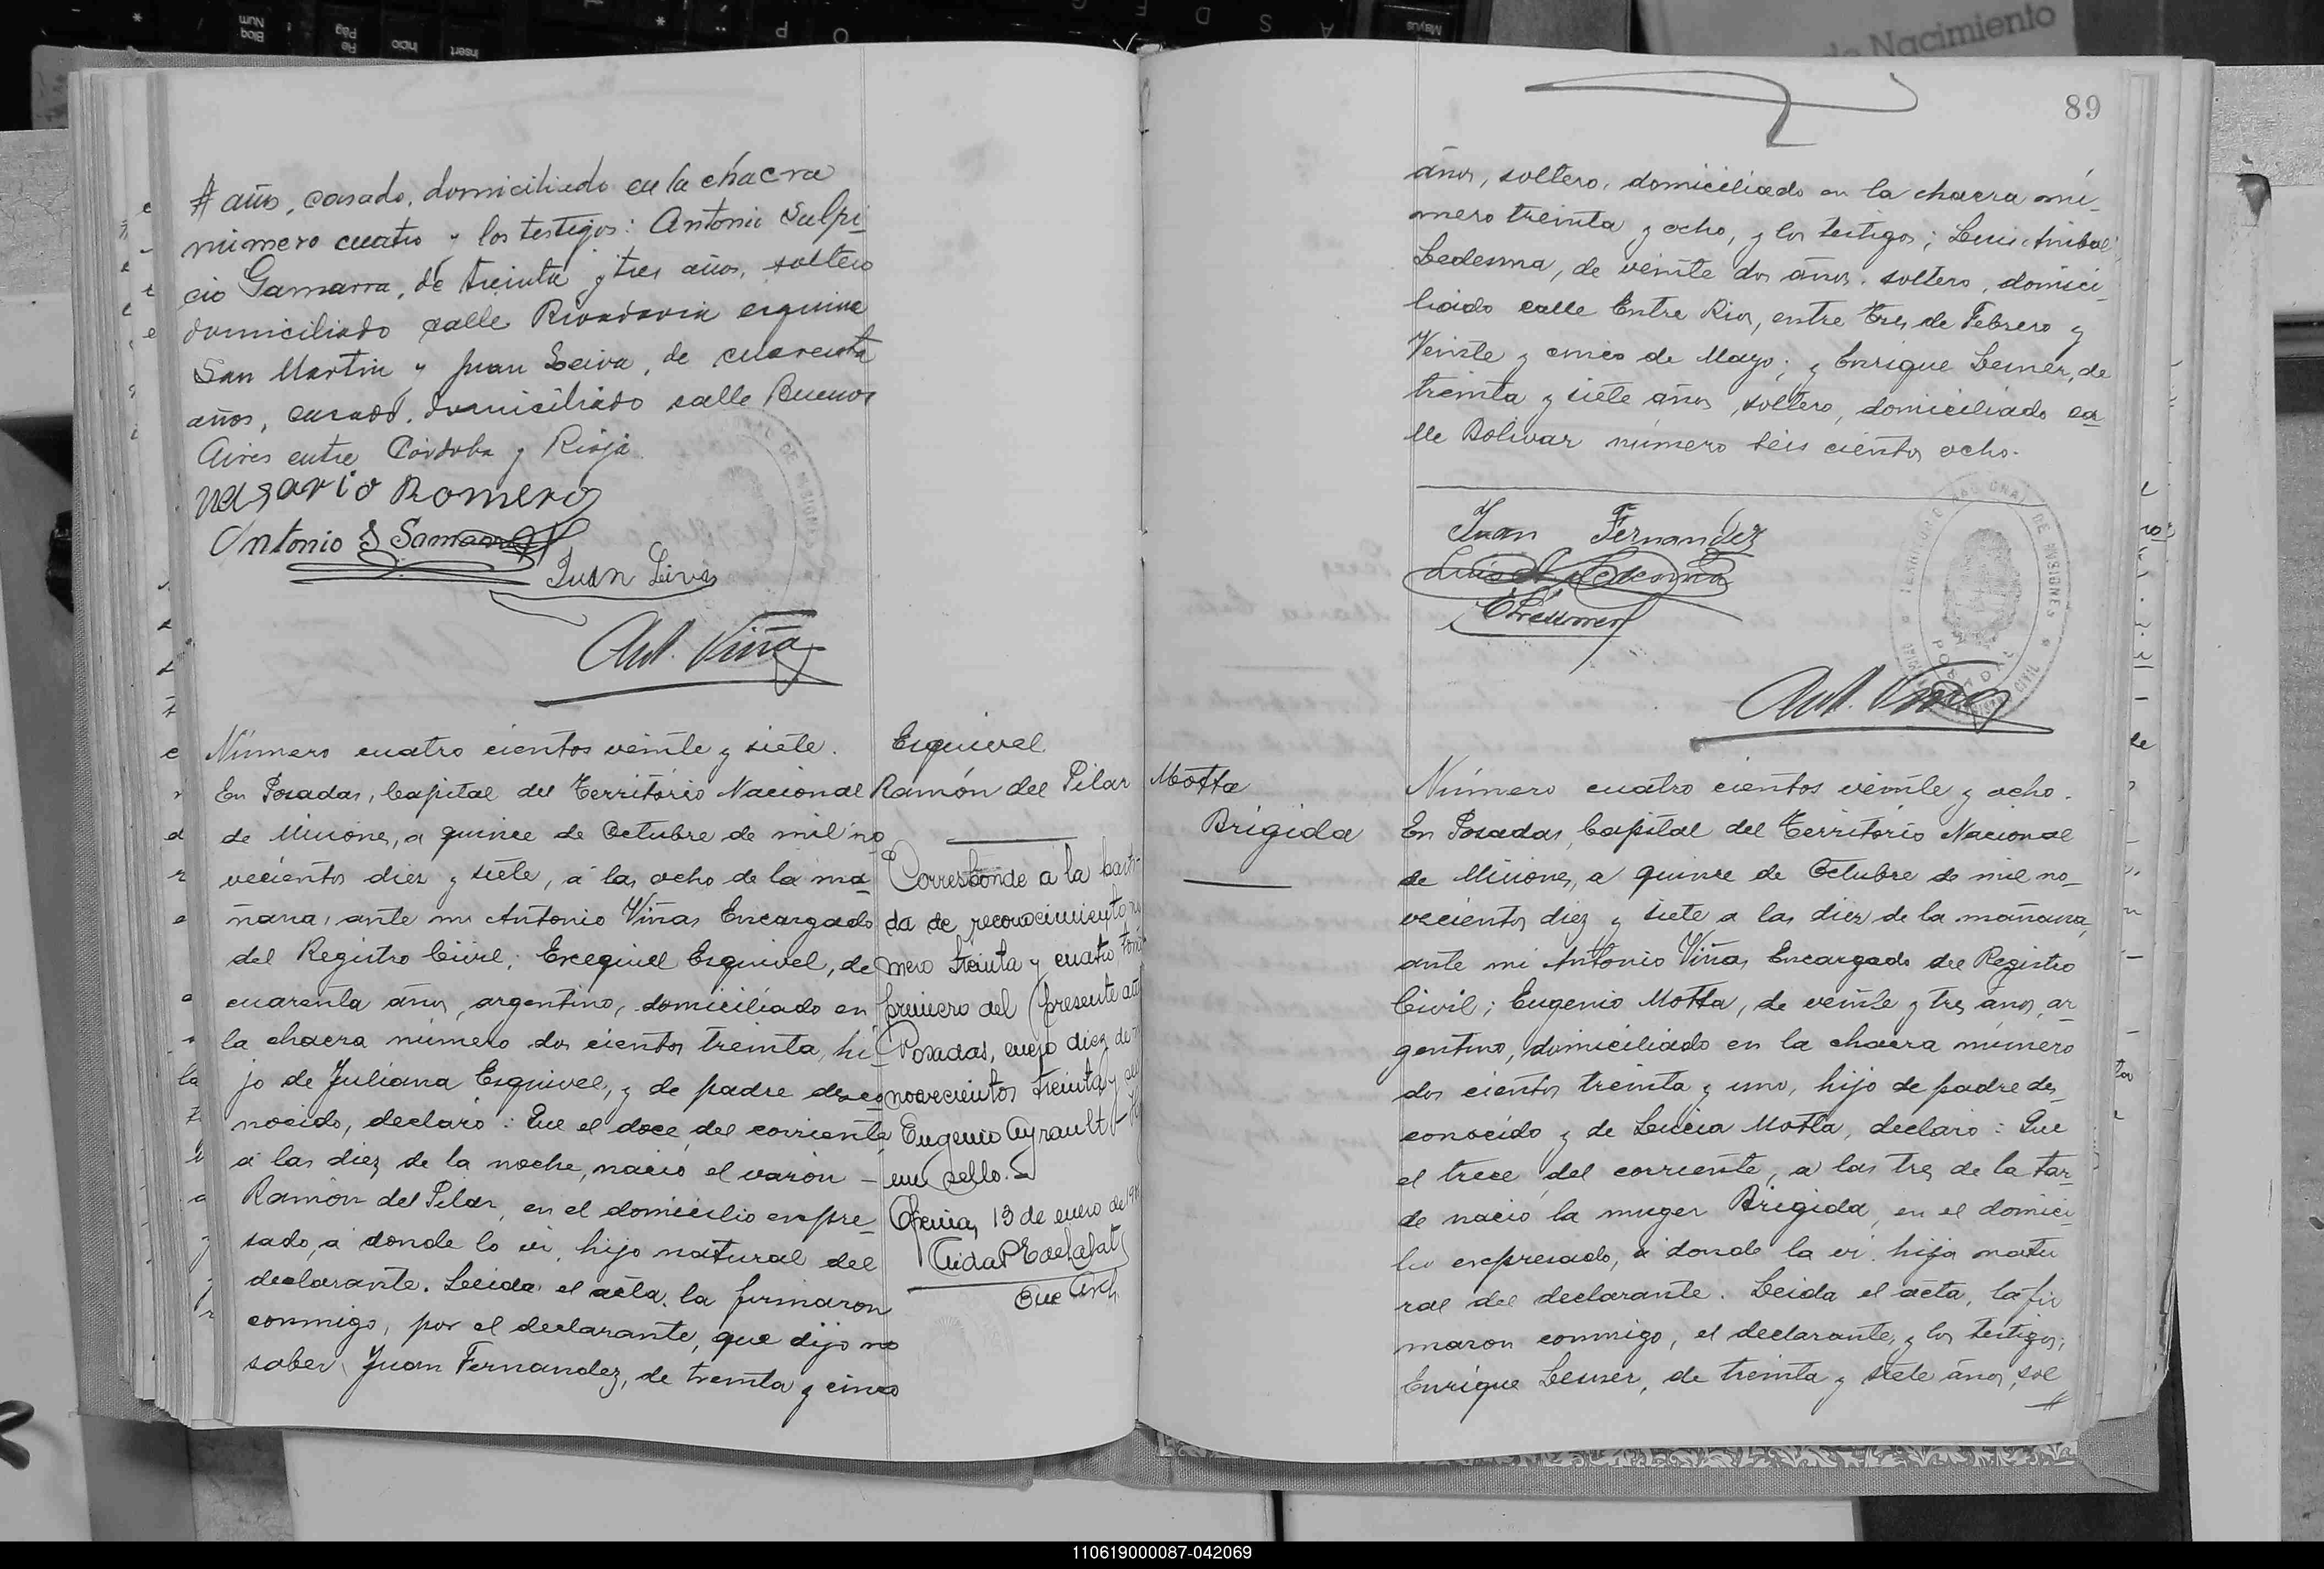 # años, casado, domiciliado en la chacra
número cuatro y los testigos: Antonio Sulpi-
cio Gamarra, de treinta y tres años, soltero
domiciliado calle Rivadavia esquina
San Martin y Juan Leiva, de cuarenta
años, casado, domiciliado calle Buenos
Aires entre Córdoba y Rioja.
Nasario Romero
Antonio S Gamarra
Juan Leiva
Ant. Viña
Número cuatro cientos veinte y siete.
En Posadas, Capital del Território Nacional
de Misiones, a quince de Octubre de mil no
vecientos diez y siete, á las ocho de la ma-
ñana, ante mi Antonio Viñas Encargado
del Registro Civil; Exequiel Esquivel, de
cuarenta años, argentino, domiciliado en
la chacra número dos cientos treinta, hi-
jo de Juliana Esquivel, y de padre desco
nocido, declaró: Que el doce del corriente
á las diez de la noche, nació el varón -
Ramón del Pilar, en el domicilio expre
sado, a donde lo vi, hijo natural del
declarante. Leida el acta, la firmaron
conmigo, por el declarante, que dijo no
saber, Juan Fernandez, de treinta y cinco
Esquivel
Ramón del Pilar
Corresponde a la parti-
da de reconocimiento nú
mero treinta y cuatro tomo
primero del presente año
Posadas, enero diez de
novecientos treinta y
Eugenio Ayrault
un sello.-
Oficina, 13 de enero de
Aida
89
años, soltero, domiciliado en la chacra nú-
mero treinta y ocho, y los testigos; Luis Anibal
Ledesma, de veinte dos años, soltero, domici-
liado calle Entre Rios, entre Tres de Febrero y
Veinte y cinco de Mayo; y Enrique Lesner, de
treinta y siete años, soltero, domiciliado ca-
lle Bolivar número seis cientos ocho.
Juan Fernandez
Luis A Ledesma
TERRITORIO NACIONAL DE MISIONES
POSADAS
Ant. Viña
Motta
Brígida
Número cuatro cientos veinte y ocho.
En Posadas, Capital del Território Nacional
de Misiones, a quince de Octubre de mil no-
vecientos diez y siete a las diez de la mañana,
ante mi Antonio Viñas Encargado del Registro
Civil; Eugenio Motta, de veinte y tres años, ar
gentino, domiciliado en la chacra número
dos cientos treinta y uno, hijo de padre des-
conocido y de Lucia Motta, declaró: Que
el trece del corriente, a las tres de la tar-
de nació la muger Brígida, en el domici-
lio expresado, a donde la vi, hija natu
ral del declarante. Leida el acta, la fir
maron conmigo, el declarante, y los testigos;
Enrique Lesner, de treinta y siete años, sol
#
110619000087-042069